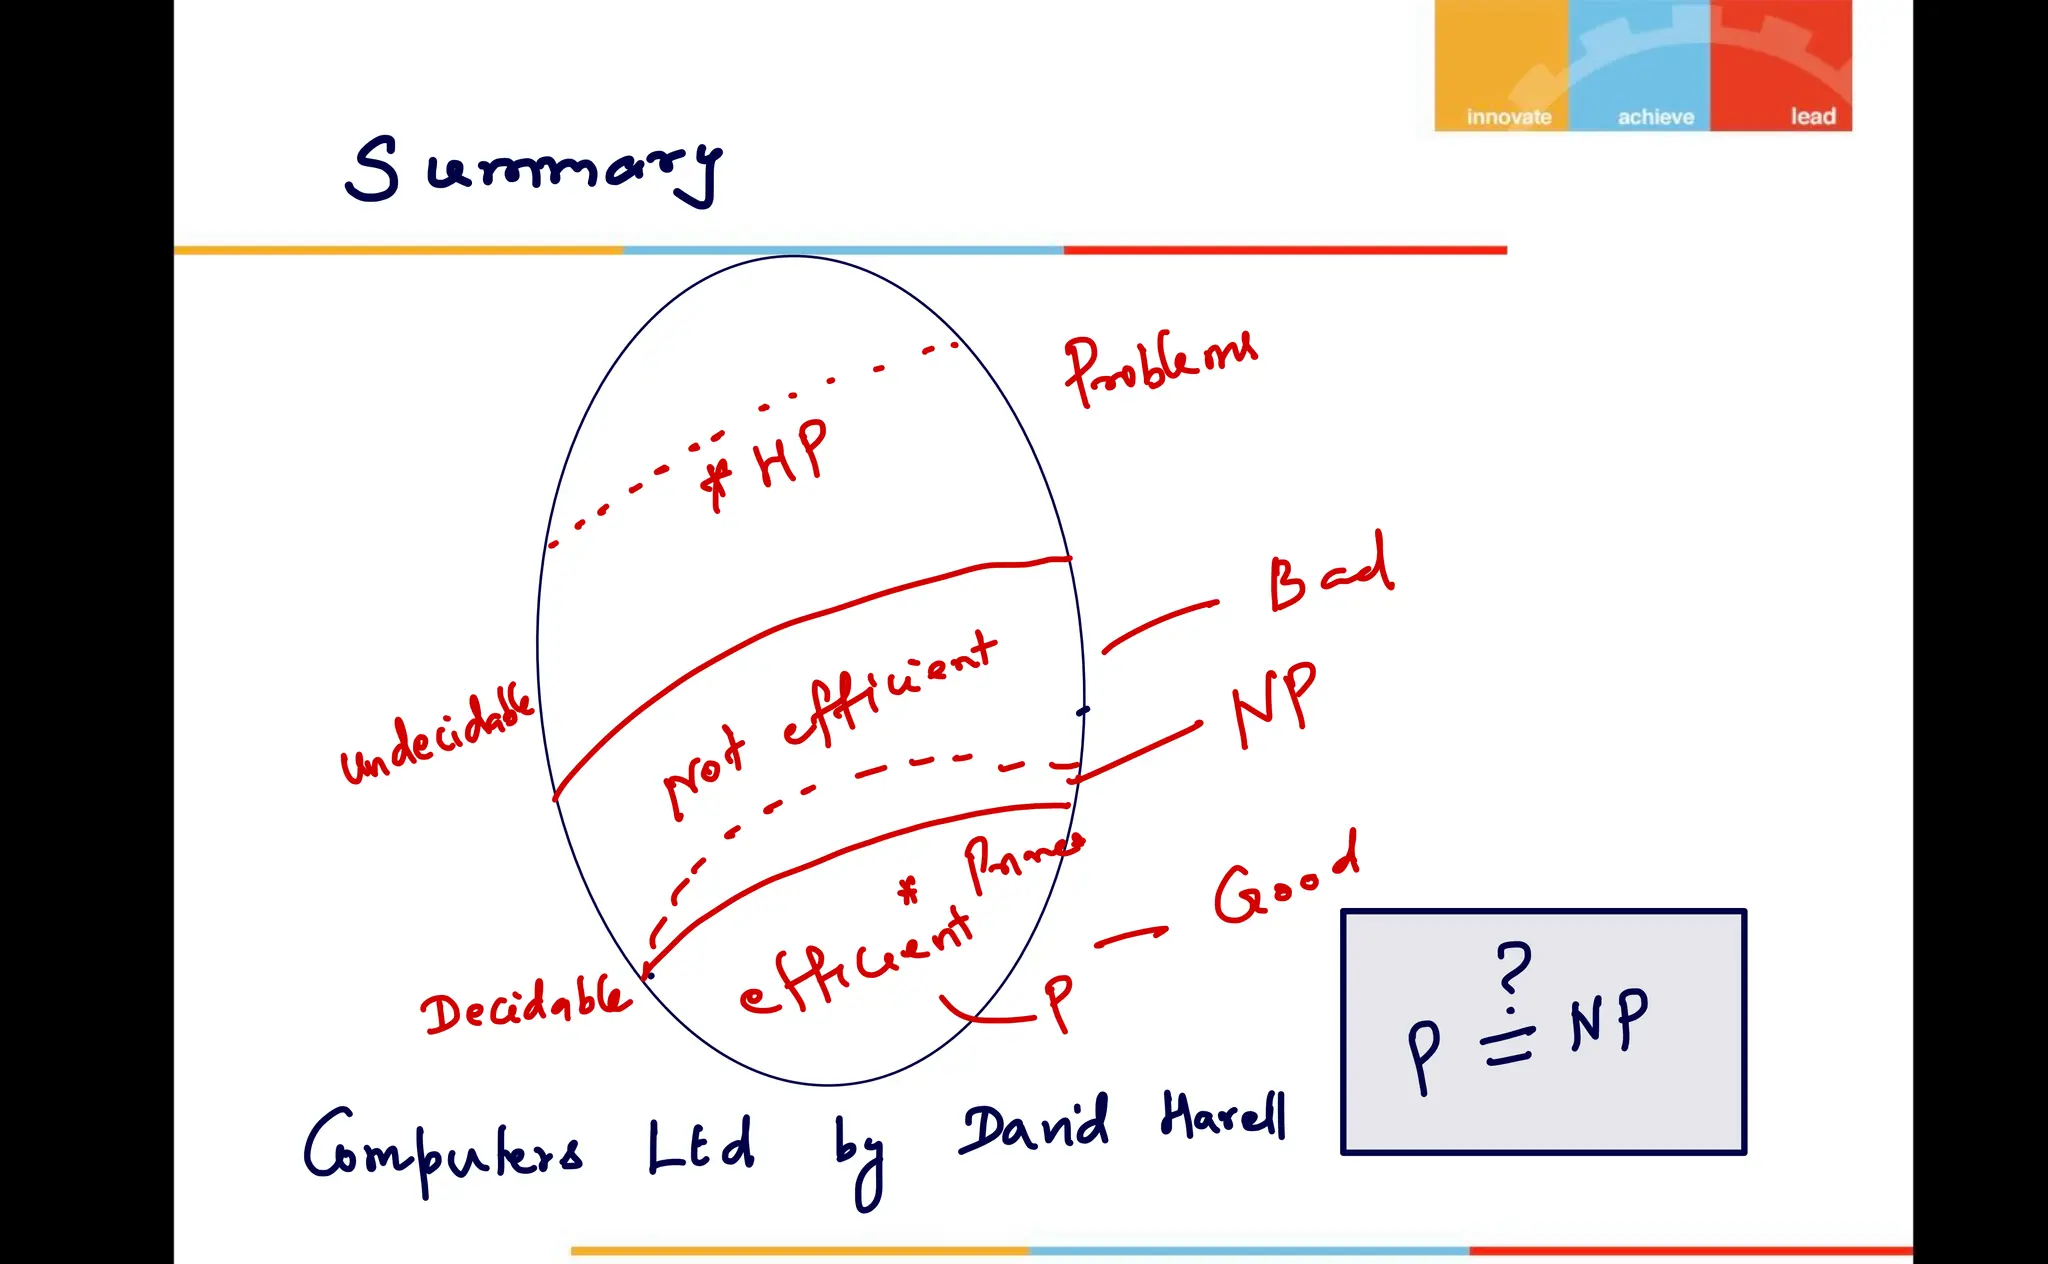 innovate achieve lead
Summary
Problems
* HP
Bad
Not efficient
Undecidable
NP
* Primes
Good
efficient
P
Decidable
?
P = NP
Computers Ltd by David Harell